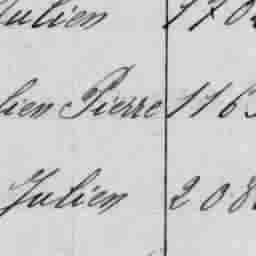 Julien 170
lien Pierre 116
Julien 208